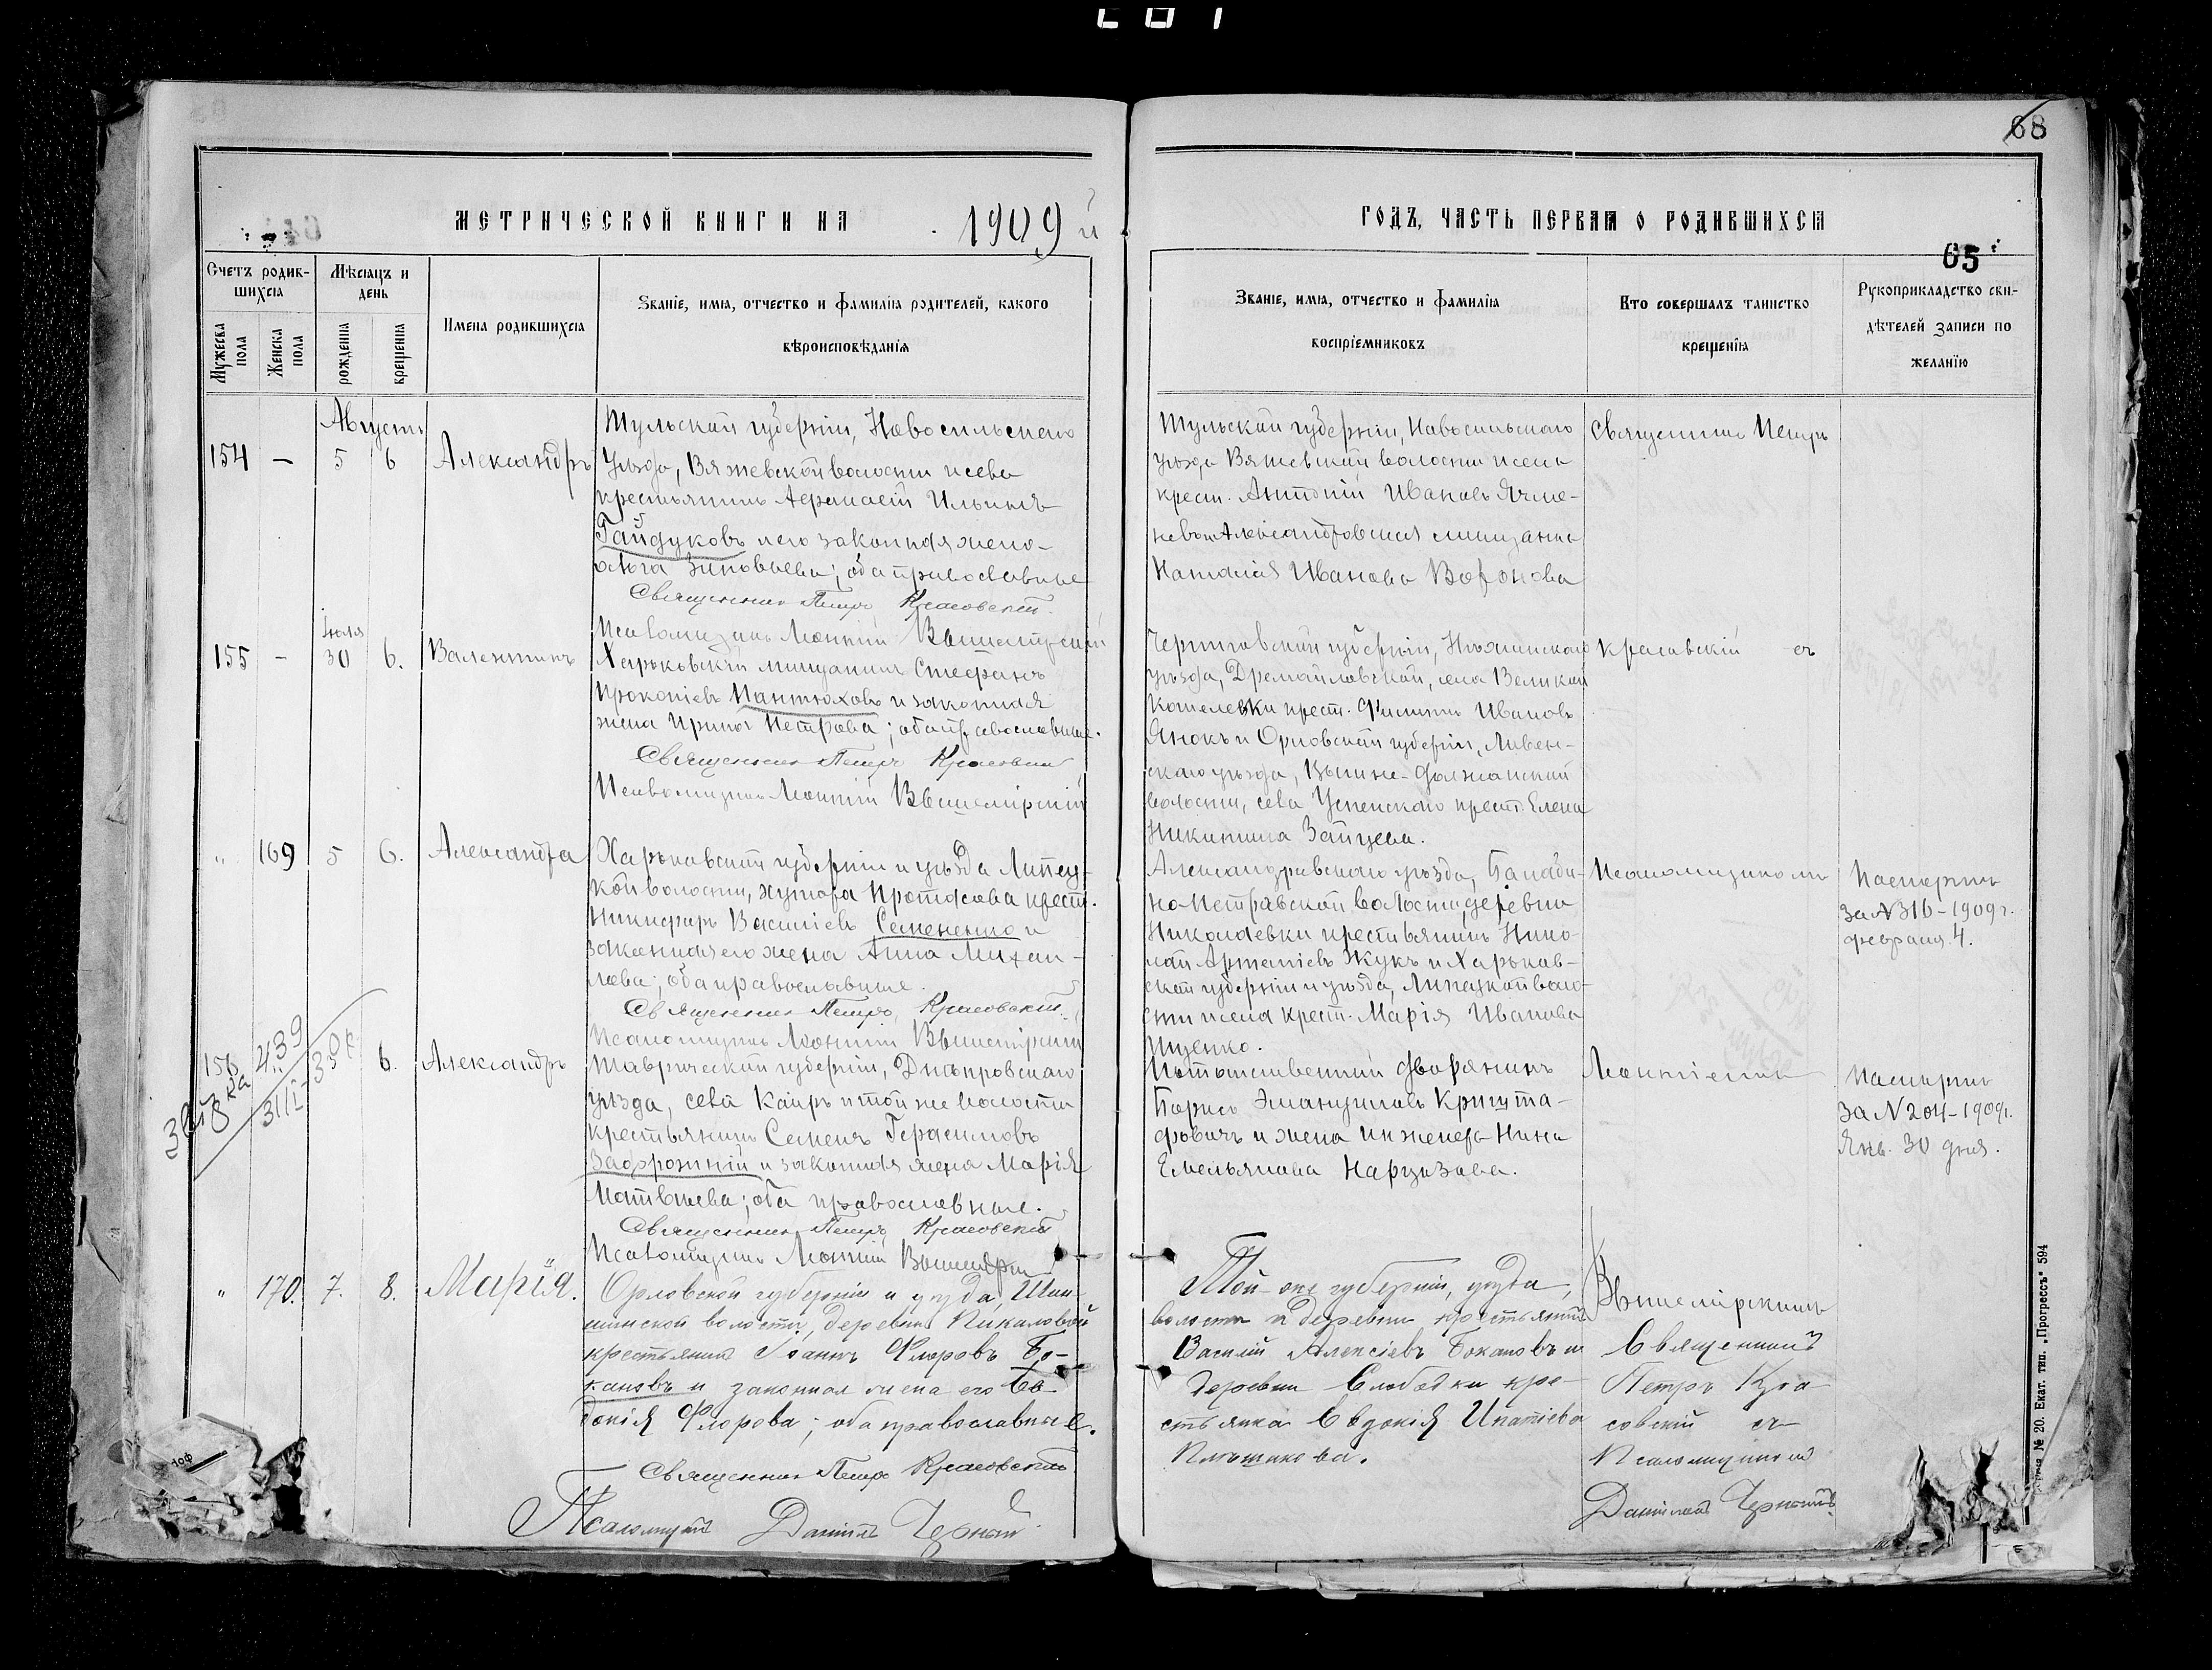 68
МЕТРИЧЕСКОЙ КНИГИ НА 1909 й
ГОДЪ, ЧАСТЬ ПЕРВАЯ О РОДИВШИХСЯ
65
Счетъ родив-
шихся
Мужеска пола
Женска пола
Мѣсяцъ и
день
рожденія
крещенія
Имена родившихся
Званіе, имя, отчество и фамилія родителей, какого
вѣроисповѣданія
Званіе, имя, отчество и фамилія
воспріемниковъ
Кто совершалъ таинство
крещенія
Рукоприкладство сви-
дѣтелей записи по
желанію
Августъ
154 — 5 6 Александръ
Тульской губерніи, Новосильскаго
уѣзда, Вяжевской волости и села
крестьянинъ Афанасій Ильинъ
Гайдуковъ и его законная жена
Ольга Зиновьева; оба православные
Священникъ Петръ Красовскій.
Псаломщикъ Леонтій Вышемірскій
Тульской губерніи, Новосильскаго
уѣзда Вяжевской волости и села
крест. Антоній Ивановъ Ячме-
невъ и Александровская мѣщанка
Наталія Иванова Воронова
Священникъ Петръ
Іюля
155 — 30 6. Валентинъ
Харьковскій мѣщанинъ Стефанъ
Прокопіевъ Пантюховъ и законная
жена Ирина Петрова; оба православные.
Священникъ Петръ Красовскій
Псаломщикъ Леонтій Вышемірскій
Черниговской губерніи, Нѣжинскаго
уѣзда, Дремайловской, села Великой
Кошелевки крест. Филиппъ Ивановъ
Янокъ и Орловской губерніи, Ливен-
скаго уѣзда, Вышне-Должанской
волости, села Успенскаго крест. Елена
Никитина Зайцева.
Красовскій съ
" 169 5 6. Александра
Харьковской губерніи и уѣзда Липец-
кой волости, хутора Протасова крест.
Никифоръ Василіевъ Семененко и
законная его жена Анна Михаи-
лова; оба православные.
Священникъ Петръ Красовскій.
Псаломщикъ Леонтій Вышемірскій
Александровскаго уѣзда,
но-Петровской волости, деревни
Николаевки крестьянинъ Нико-
лай Артеміевъ Жукъ и Харьков-
ской губерніи и уѣзда, Липецкой воло-
сти и села крест. Марія Иванова
Ищенко.
Псаломщикомъ
Паспортъ
за № 316 - 1909 г.
февраля 4.
156 " 6. Александръ
439
31/I
Таврической губерніи, Днѣпровскаго
уѣзда, села Каиръ и той же волости
крестьянинъ Семенъ Герасимовъ
Задорожній и законная жена Марія
Матвѣева; оба православные.
Священникъ Петръ Красовскій
Псаломщикъ Леонтій Вышемірскій
Потомственный дворянинъ
Борисъ Эмануиловъ Кришта-
фовичъ и жена инженера Нина
Емельянова Нарцизова.
Леонтіемъ
Паспортъ
за № 204 - 1909 г.
Янв. 30 дня.
" 170. 7. 8. Марія.
Орловской губерніи и уѣзда,
шинской волости, деревни Пикаловой
крестьянинъ Іоаннъ Флоровъ Бо-
кановъ и законная жена его Ев-
докія Флорова; оба православные.
Священникъ Петръ Красовскій
Псаломщикъ Даніилъ Черный
Той-же губерніи, уѣзда,
волости и деревни крестьянинъ
Василій Алексіевъ Бокановъ и
деревни Слободки кре-
стьянка Евдокія Ипатіева
Вышемірскимъ
Священникъ
Петръ Кра-
совскій съ
Псаломщикомъ
Даніиломъ Чернымъ
№ 20. Екат. тип. „Прогрессъ" 594